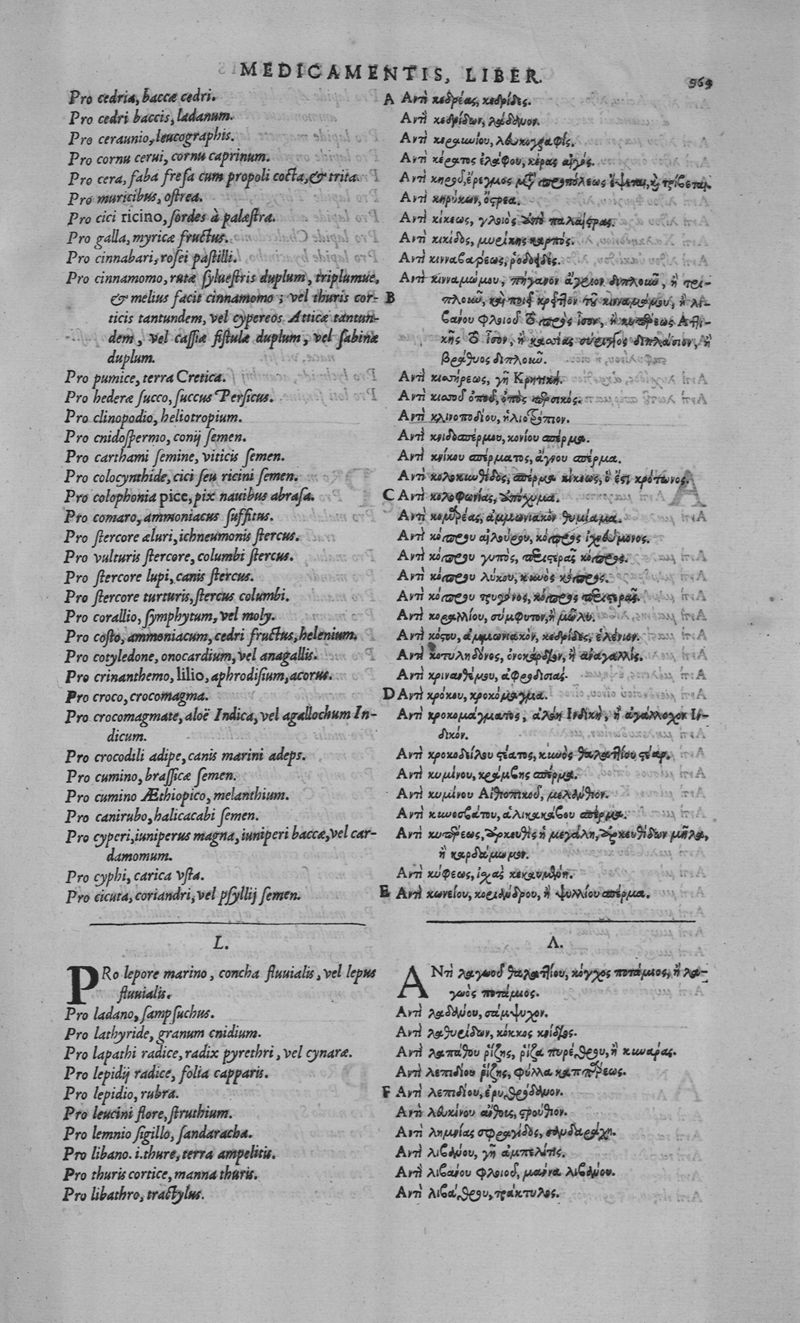 MEDICAMENTIS, LIBER.
969
Pro cedria, baccæ cedri.
Pro cedri baccis, ladanum.
Pro ceraunio, leucographis.
Pro cornu cerui, cornu caprinum.
Pro cera, faba fresa cum propoli cocta, & trita.
Pro muricibus, ostrea.
Pro cici ricino, sordes à palæstra.
Pro galla, myricæ fructus.
Pro cinnabari, rosei pastilli.
Pro cinnamomo, rutæ syluestris duplum, triplumue,
& melius facit cinnamomo; vel thuris cor-
ticis tantundem, vel cypereos Atticæ tantun-
dem, vel cassiæ fistulæ duplum, vel sabinæ
duplum.
Pro pumice, terra Cretica.
Pro hederæ succo, succus Persicus.
Pro clinopodio, heliotropium.
Pro cnidospermo, conij semen.
Pro carthami semine, viticis semen.
Pro colocynthide, cici seu ricini semen.
Pro colophonia pice, pix nauibus abrasa.
Pro comaro, ammoniacus suffitus.
Pro stercore æluri, ichneumonis stercus.
Pro vulturis stercore, columbi stercus.
Pro stercore lupi, canis stercus.
Pro stercore turturis, stercus columbi.
Pro corallio, symphytum, vel moly.
Pro costo, ammoniacum, cedri fructus, helenium.
Pro cotyledone, onocardium, vel anagallis.
Pro crinanthemo, lilio, aphrodisium, acorus.
Pro croco, crocomagma.
Pro crocomagmate, aloë Indica, vel agallochum In-
dicum.
Pro crocodili adipe, canis marini adeps.
Pro cumino, brassicæ semen.
Pro cumino Æthiopico, melanthium.
Pro canirubo, halicacabi semen.
Pro cyperi, iuniperus magna, iuniperi baccæ, vel car-
damomum.
Pro cyphi, carica vsta.
Pro cicuta, coriandri, vel psyllij semen.
L.
PRo lepore marino, concha fluuialis, vel lepus
fluuialis.
Pro ladano, sampsuchus.
Pro lathyride, granum cnidium.
Pro lapathi radice, radix pyrethri, vel cynaræ.
Pro lepidij radice, folia capparis.
Pro lepidio, rubra.
Pro leucini flore, struthium.
Pro lemnio sigillo, sandaracha.
Pro libano. i. thure, terra ampelitis.
Pro thuris cortice, manna thuris.
Pro libathro, tractylus.
A Αντὶ κεδρέας, κεδρίδες.
Αντὶ κεδρίδων, λάδανον.
Αντὶ κεραυνίου, λευκογραφίς.
Αντὶ κέρατος ἐλάφου, κέρας αἰγός.
Αντὶ κηροῦ, ἔρεγμος μετὰ προπόλεως ἕψεται, ἢ τρίβεται.
Αντὶ κηρύκων, ὄστρεα.
Αντὶ κίκεως, γλοιὸς ἀπὸ παλαίστρας.
Αντὶ κικίδος, μυρίκης καρπός.
Αντὶ κινναβάρεως, ῥοδοειδές.
Αντὶ κιναμώμου, πήγανον ἄγριον διπλοῦν, ἢ τρι-
B πλοῦν, καὶ ποιεῖ κρεῖττον τῦ κιναμώμου, ἢ λι-
βάνου φλοιοῦ τὸ πρὸς ἴσον, ἢ κυπέρεως Ἀττι-
κῆς τὸ ἴσον, ἢ κασσίας σύριγγος διπλάσιον, ἢ
βράθυος διπλοῦν.
Αντὶ κισσήρεως, γῆ Κρητική.
Αντὶ κισσοῦ ὀποῦ, ὀπὸς περσικός.
Αντὶ κλινοποδίου, ἡλιοτρόπιον.
Αντὶ κνιδοσπέρμου, κονίου σπέρμα.
Αντὶ κνίκου σπέρματος, ἄγνου σπέρμα.
Αντὶ κολοκυνθίδος, σπέρμα κίκεως, ὅ ἐστι κρότωνος.
C Αντὶ κολοφωνίας, ἀπόχυμα.
Αντὶ κομάρεας, ἀμμωνιακὸν θυμίαμα.
Αντὶ κόπρου αἰλούρου, κόπρος ἰχνεύμονος.
Αντὶ κόπρου γυπὸς, περιστερᾶς κόπρος.
Αντὶ κόπρου λύκου, κυνὸς κόπρος.
Αντὶ κόπρου τρυγόνος, κόπρος περιστερᾶς.
Αντὶ κοραλλίου, σύμφυτον, ἢ μῶλυ.
Αντὶ κόστου, ἀμμωνιακὸν, κεδρίδες, ἑλένιον.
Αντὶ κοτυληδόνος, ὀνοκάρδιον, ἢ ἀναγαλλίς.
Αντὶ κρινανθέμου, ἀφροδισιάς.
D Αντὶ κρόκου, κροκόμαγμα.
Αντὶ κροκομάγματος, ἀλόη Ἰνδικὴ, ἢ ἀγάλλοχον Ἰν-
δικόν.
Αντὶ κροκοδείλου στέατος, κυνὸς θαλαττίου στέαρ.
Αντὶ κυμίνου, κράμβης σπέρμα.
Αντὶ κυμίνου Αἰθιοπικοῦ, μελάνθιον.
Αντὶ κυνοσβάτου, ἁλικακάβου σπέρμα.
Αντὶ κυπέρεως, ἄρκευθὶς ἡ μεγάλη, ἀρκευθίδων μῆλα,
ἢ καρδάμωμον.
Αντὶ κύφεως, ἰσχὰς κεκαυμένη.
E Αντὶ κωνείου, κοριάνδρου, ἢ ψυλλίου σπέρμα.
Λ.
ΑΝτὶ λαγωοῦ θαλαττίου, κόγχος ποτάμιος, ἢ λα-
γωὸς ποτάμιος.
Αντὶ λαδάνου, σάμψυχον.
Αντὶ λαθυρίδων, κόκκος κνίδιος.
Αντὶ λαπάθου ῥίζης, ῥίζα πυρέθρου, ἢ κινάρας.
Αντὶ λεπιδίου ῥίζης, φύλλα καππάρεως.
F Αντὶ λεπιδίου, ἐρυθρόδανον.
Αντὶ λευκίνου ἄνθους, στρούθιον.
Αντὶ λημνίας σφραγίδος, σανδαράχη.
Αντὶ λιβάνου, γῆ ἀμπελῖτις.
Αντὶ λιβάνου φλοιοῦ, μάννα λιβάνου.
Αντὶ λιβάθρου, τράκτυλος.